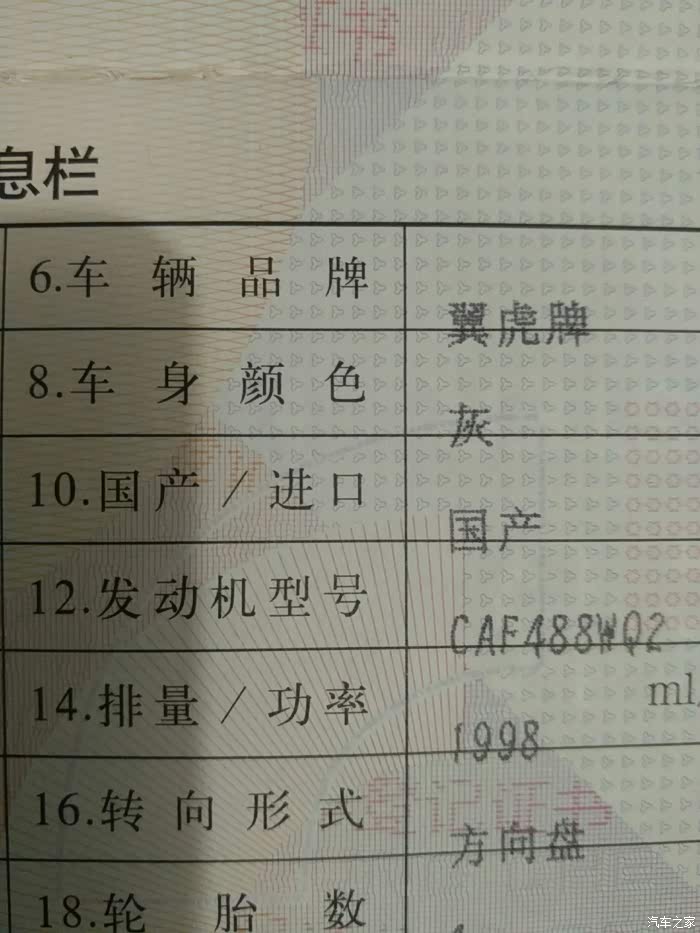 息栏
6.车辆品牌 翼虎牌
8.车身颜色 灰
10.国产/进口 国产
12.发动机型号 CAF488WQ2
14.排量/功率 1998 ml/
16.转向形式 方向盘
18.轮胎数
汽车之家